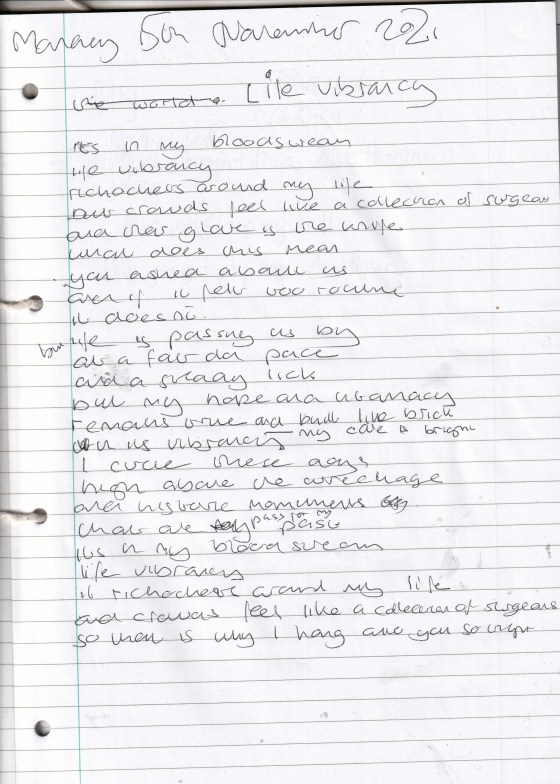 Monday 5th November 2021
the world. Life vibrancy
its in my bloodstream
life vibrancy
richochets around my life
but crowds feel like a collection of surgeons
and their glove is the knife
what does this mean
you asked about us
even if it felt too routine
it doesnt.
but life is passing us by
at a fair old pace
and a steady lick
but my hope and
remains true and built like brick
in its vibrancy my core is bright
I circle these days
high above the wrechage
and historic monuments
that are pass for my past
its in my bloodstream
life vibrancy
it richochets around my life
and crowds feel like a collection of surgeons
so then is why I hang onto you so tight